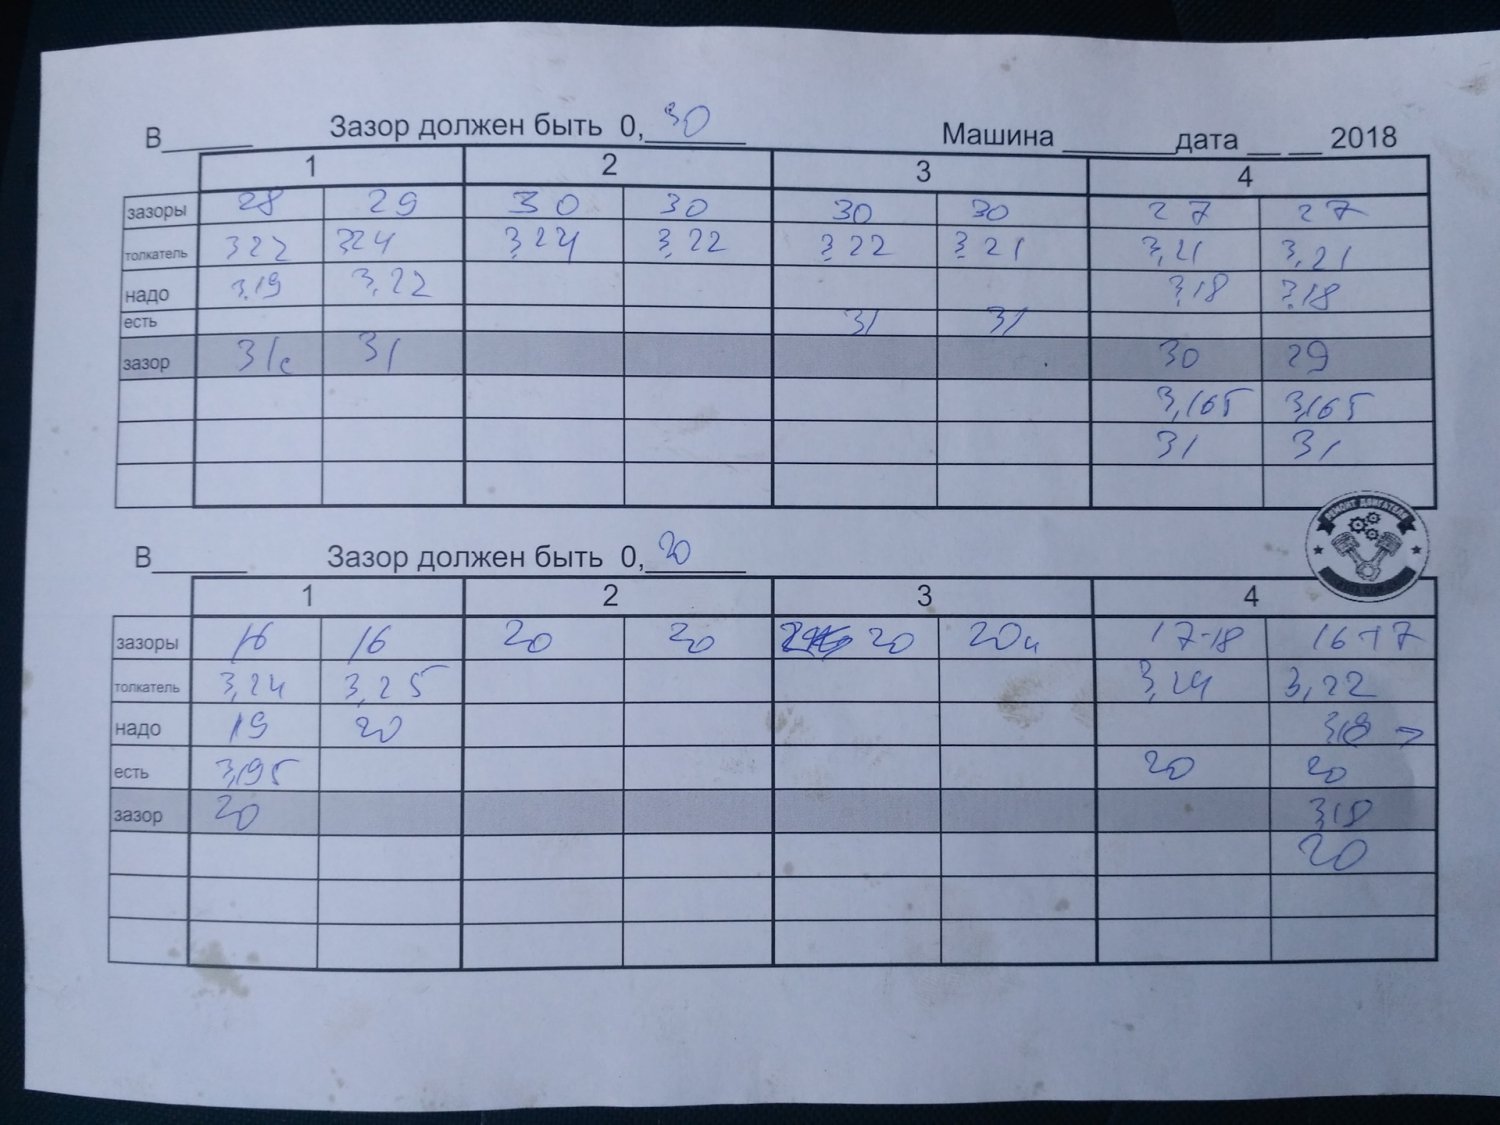 В______ Зазор должен быть 0,30 Машина _______ дата __ __ 2018
1 2 3 4
зазоры 28 29 30 30 30 30 27 27
толкатель 322 324 3,24 3,22 3,22 3,21 3,21 3,21
надо 3,19 3,22 3,18 3,18
есть 31 31
зазор 31 31 30 29
3,165 3,165
31 31
РЕМОНТ ДВИГАТЕЛЯ
В______ Зазор должен быть 0,20
1 2 3 4
зазоры 16 16 20 20 20 20 17-18 16-17
толкатель 3,24 3,25 3,24 3,22
надо 19 20 318 →
есть 3,195 20 20
зазор 20 3,18
20